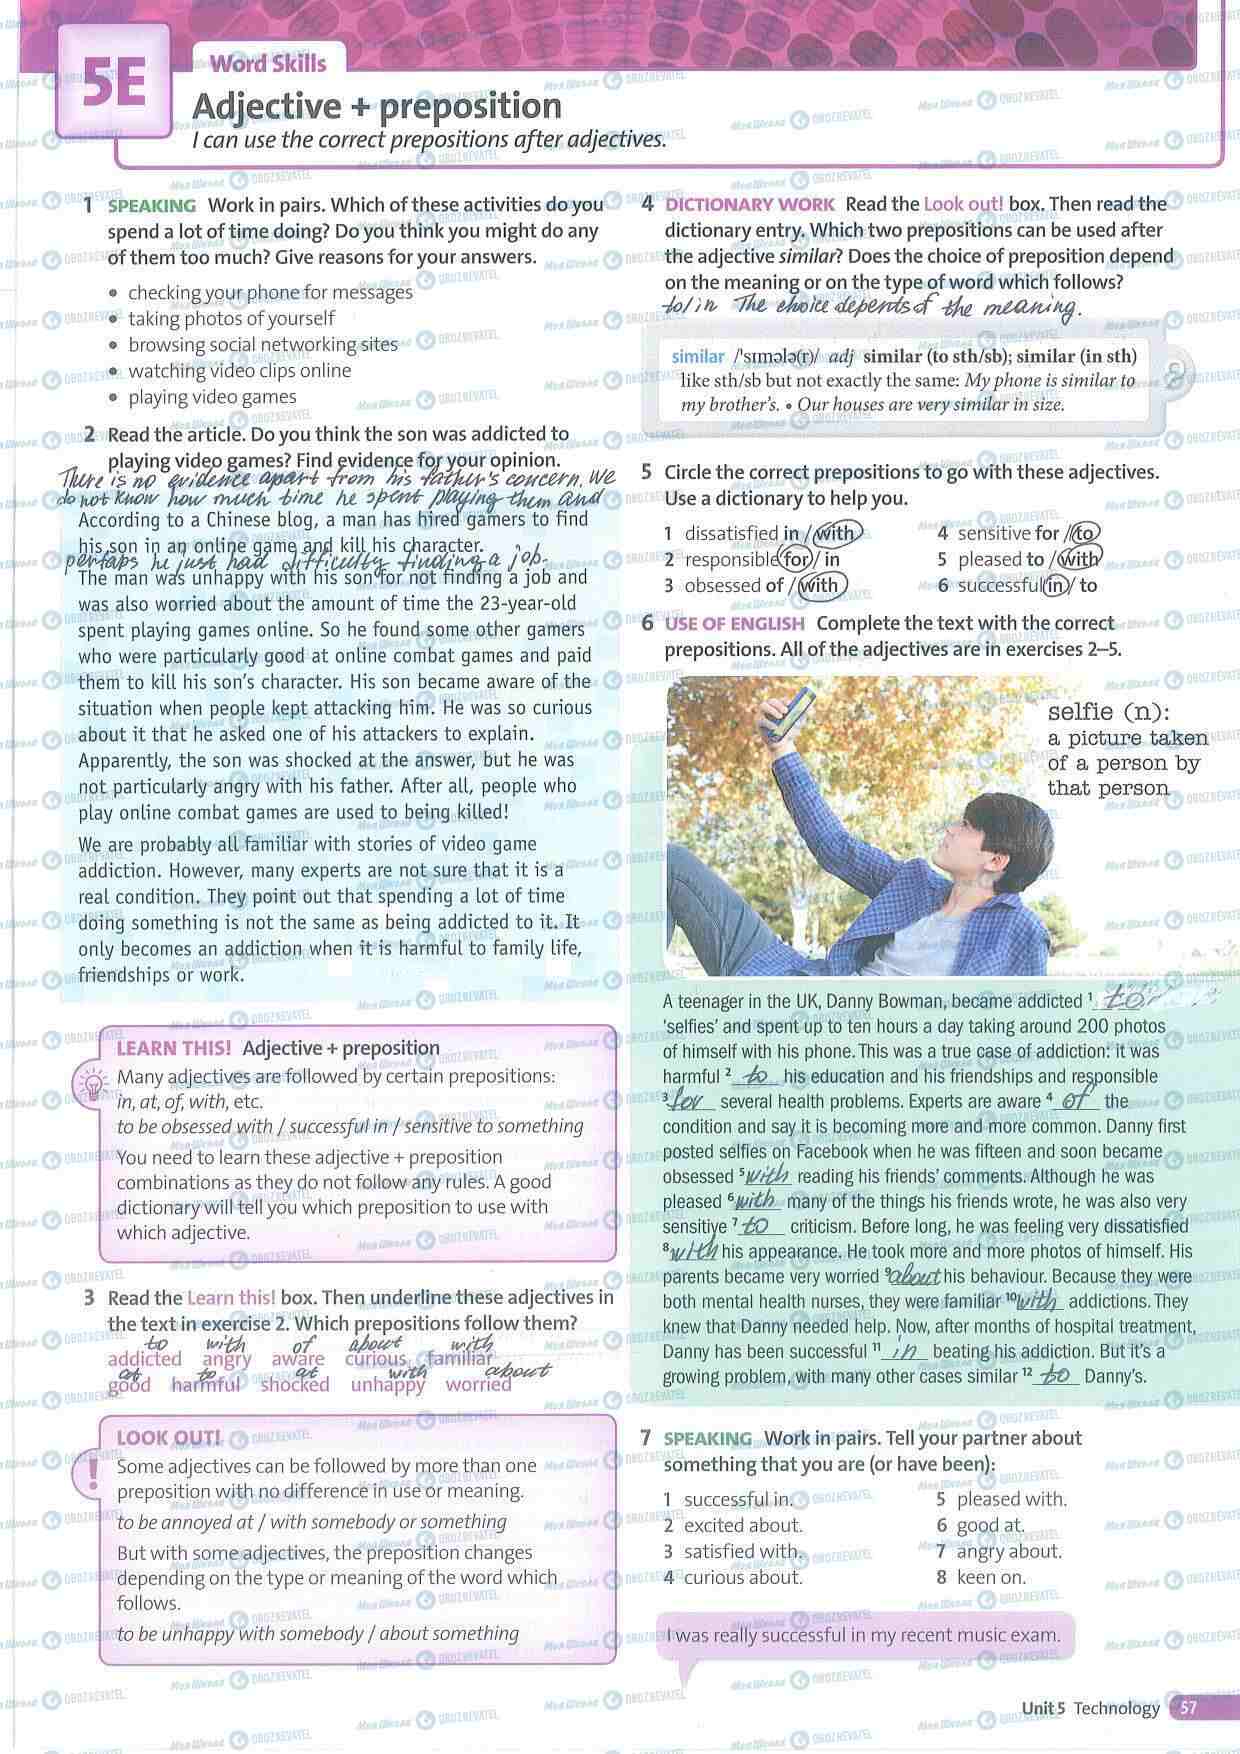 5E
Word Skills
Adjective + preposition
I can use the correct prepositions after adjectives.
1 SPEAKING Work in pairs. Which of these activities do you
spend a lot of time doing? Do you think you might do any
of them too much? Give reasons for your answers.
• checking your phone for messages
• taking photos of yourself
• browsing social networking sites
• watching video clips online
• playing video games
2 Read the article. Do you think the son was addicted to
playing video games? Find evidence for your opinion.
There is no evidence apart from his father's concern. We
do not know how much time he spent playing them and
According to a Chinese blog, a man has hired gamers to find
his son in an online game and kill his character.
perhaps he just had difficulty finding a job.
The man was unhappy with his son for not finding a job and
was also worried about the amount of time the 23-year-old
spent playing games online. So he found some other gamers
who were particularly good at online combat games and paid
them to kill his son's character. His son became aware of the
situation when people kept attacking him. He was so curious
about it that he asked one of his attackers to explain.
Apparently, the son was shocked at the answer, but he was
not particularly angry with his father. After all, people who
play online combat games are used to being killed!
We are probably all familiar with stories of video game
addiction. However, many experts are not sure that it is a
real condition. They point out that spending a lot of time
doing something is not the same as being addicted to it. It
only becomes an addiction when it is harmful to family life,
friendships or work.
LEARN THIS! Adjective + preposition
Many adjectives are followed by certain prepositions:
in, at, of, with, etc.
to be obsessed with / successful in / sensitive to something
You need to learn these adjective + preposition
combinations as they do not follow any rules. A good
dictionary will tell you which preposition to use with
which adjective.
3 Read the Learn this! box. Then underline these adjectives in
the text in exercise 2. Which prepositions follow them?
to with of about with
addicted angry aware curious familiar
at to at with about
good harmful shocked unhappy worried
LOOK OUT!
!
Some adjectives can be followed by more than one
preposition with no difference in use or meaning.
to be annoyed at / with somebody or something
But with some adjectives, the preposition changes
depending on the type or meaning of the word which
follows.
to be unhappy with somebody / about something
4 DICTIONARY WORK Read the Look out! box. Then read the
dictionary entry. Which two prepositions can be used after
the adjective similar? Does the choice of preposition depend
on the meaning or on the type of word which follows?
to/in The choice depends of the meaning.
similar /ˈsɪmələ(r)/ adj similar (to sth/sb); similar (in sth)
like sth/sb but not exactly the same: My phone is similar to
my brother's. • Our houses are very similar in size.
5 Circle the correct prepositions to go with these adjectives.
Use a dictionary to help you.
1 dissatisfied in / with
2 responsible for / in
3 obsessed of / with
4 sensitive for / to
5 pleased to / with
6 successful in / to
6 USE OF ENGLISH Complete the text with the correct
prepositions. All of the adjectives are in exercises 2–5.
selfie (n):
a picture taken
of a person by
that person
A teenager in the UK, Danny Bowman, became addicted 1 to
'selfies' and spent up to ten hours a day taking around 200 photos
of himself with his phone. This was a true case of addiction: it was
harmful 2 to his education and his friendships and responsible
3 for several health problems. Experts are aware 4 of the
condition and say it is becoming more and more common. Danny first
posted selfies on Facebook when he was fifteen and soon became
obsessed 5 with reading his friends' comments. Although he was
pleased 6 with many of the things his friends wrote, he was also very
sensitive 7 to criticism. Before long, he was feeling very dissatisfied
8 with his appearance. He took more and more photos of himself. His
parents became very worried 9 about his behaviour. Because they were
both mental health nurses, they were familiar 10 with addictions. They
knew that Danny needed help. Now, after months of hospital treatment,
Danny has been successful 11 in beating his addiction. But it's a
growing problem, with many other cases similar 12 to Danny's.
7 SPEAKING Work in pairs. Tell your partner about
something that you are (or have been):
1 successful in.
2 excited about.
3 satisfied with.
4 curious about.
5 pleased with.
6 good at.
7 angry about.
8 keen on.
I was really successful in my recent music exam.
Unit 5 Technology 57